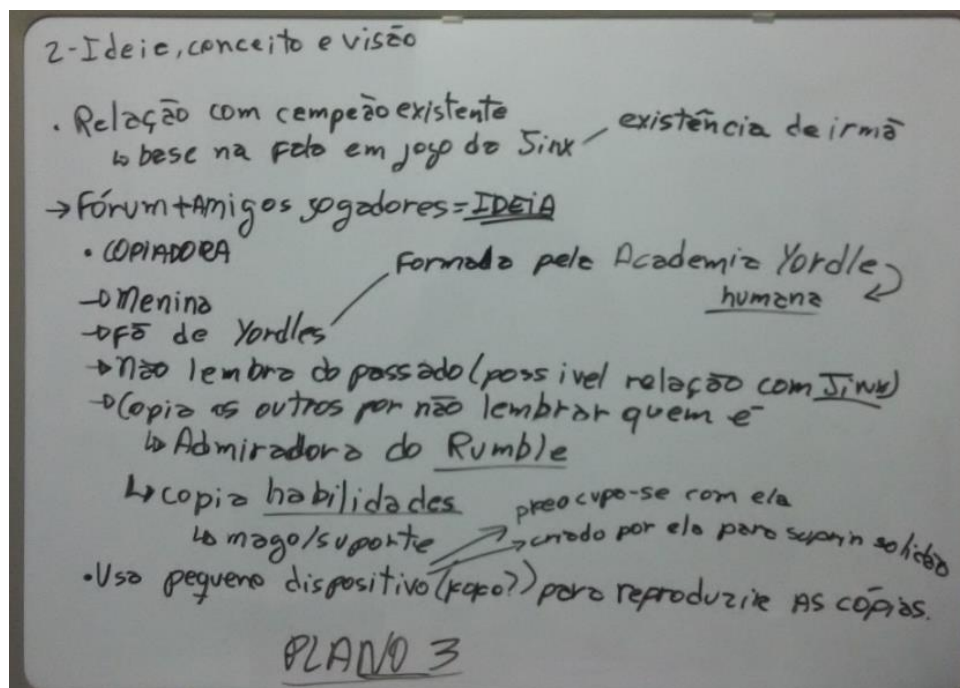 2-Ideia, conceito e visão
• Relação com campeão existente
↳ base na fala em jogo da Jinx — existência de irmã
→ Fórum + Amigos jogadores = IDEIA
• COPIADORA
→ Menina
→ Fã de Yordles — Formada pela Academia Yordle
humana
→ Não lembra do passado (possível relação com Jinx)
→ Copia os outros por não lembrar quem é
↳ Admiradora do Rumble
↳ copia habilidades
↳ mago/suporte
preocupa-se com ela
criado por ela para suprir solidão
• Usa pequeno dispositivo (?) para reproduzir AS CÓPIAS.
PLANO 3